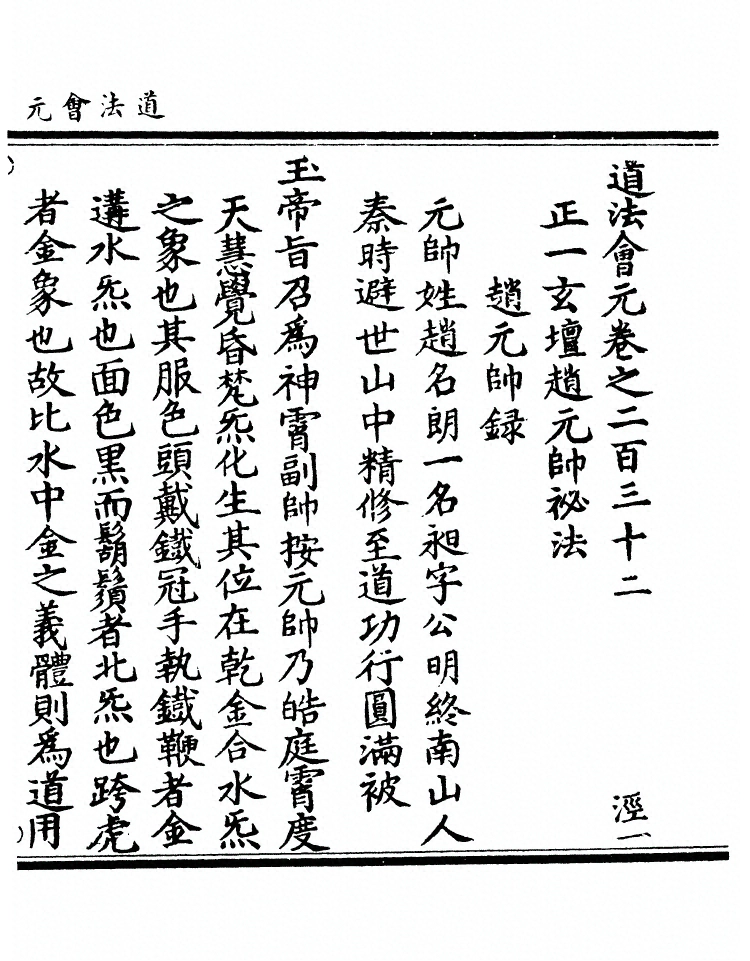 道法會元
道法會元卷之二百三十二　涇一
正一玄壇趙元帥祕法
趙元帥録
元帥姓趙名朗一名昶字公明終南山人
秦時避世山中精修至道功行圓滿被
玉帝旨召爲神霄副帥按元帥乃皓庭霄度
天慧覺昏梵炁化生其位在乾金合水炁
之象也其服色頭戴鐵冠手執鐵鞭者金
遘水炁也面色黒而鬍鬚者北炁也跨虎
者金象也故比水中金之義體則爲道用